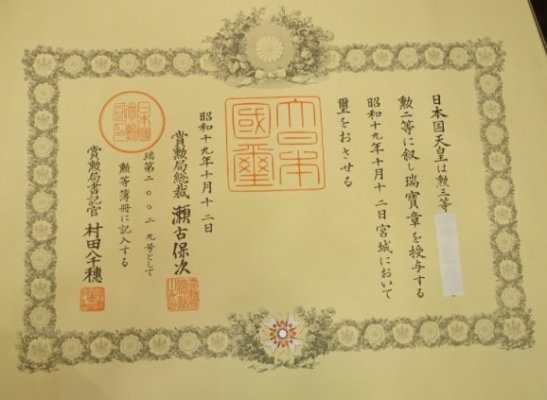 日本国天皇は勲三等
勲二等に叙し瑞寳章を授与する
昭和十九年十月十二日宮城において
璽をおさせる
大日本
國璽
昭和十九年十月十二日
賞勲局総裁 瀬古保次
瑞第二〇〇二九号として
勲等簿冊に記入する
賞勲局書記官 村田八千穗